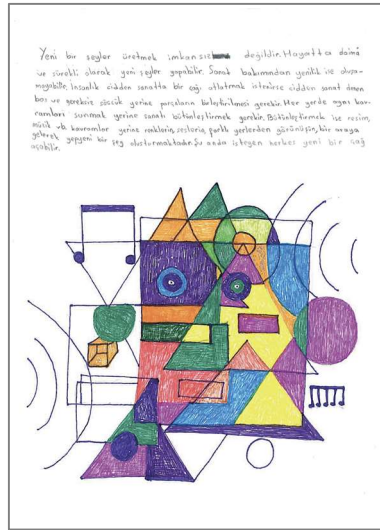 Yeni bir şeyler üretmek imkansız değildir. Hayatta daima
ve sürekli olarak yeni şeyler yapabilir. Sanat bakımından yenilik ise oluşa-
mayabilir. İnsanlık cidden sanatta bir çağ atlatmak isterse cidden sanat denen
boş ve gereksiz sözcük yerine parçaların birleştirilmesi gerekir. Her yerde aynı kav-
ramları sunmak yerine sanatı bütünleştirmek gerekir. Bütünleştirmek ise resim,
müzik vb. kavramlar yerine renklerin, seslerin, farklı yerlerden görünüşün, bir araya
gelerek yepyeni bir şey oluşturmaktadır. Şu anda isteyen herkes yeni bir çağ
açabilir.